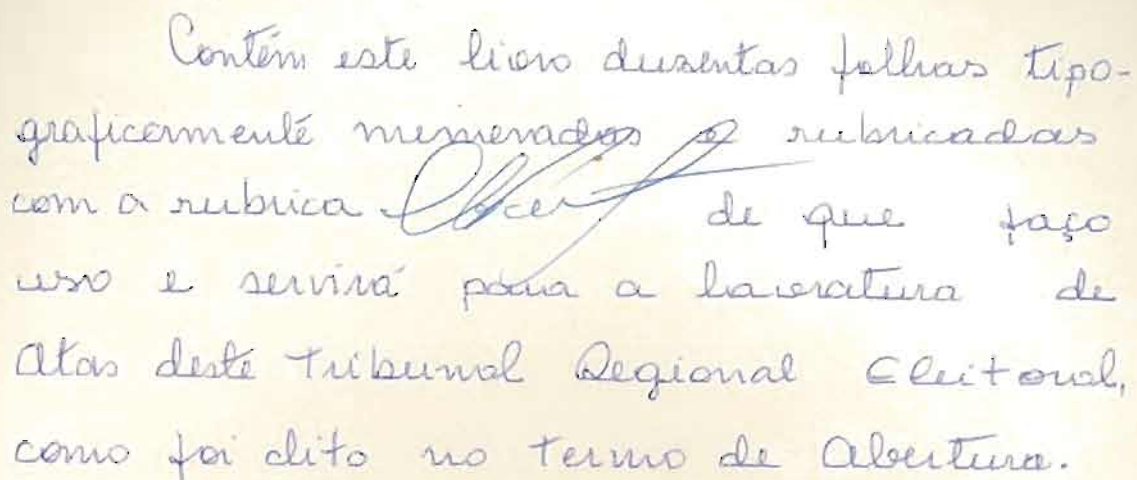 Contém este livro duzentas folhas tipo-
graficamente numeradas e rubricadas
com a rubrica de que faço
uso e servirá para a lavratura de
Atas deste Tribunal Regional Eleitoral,
como foi dito no Termo de Abertura.